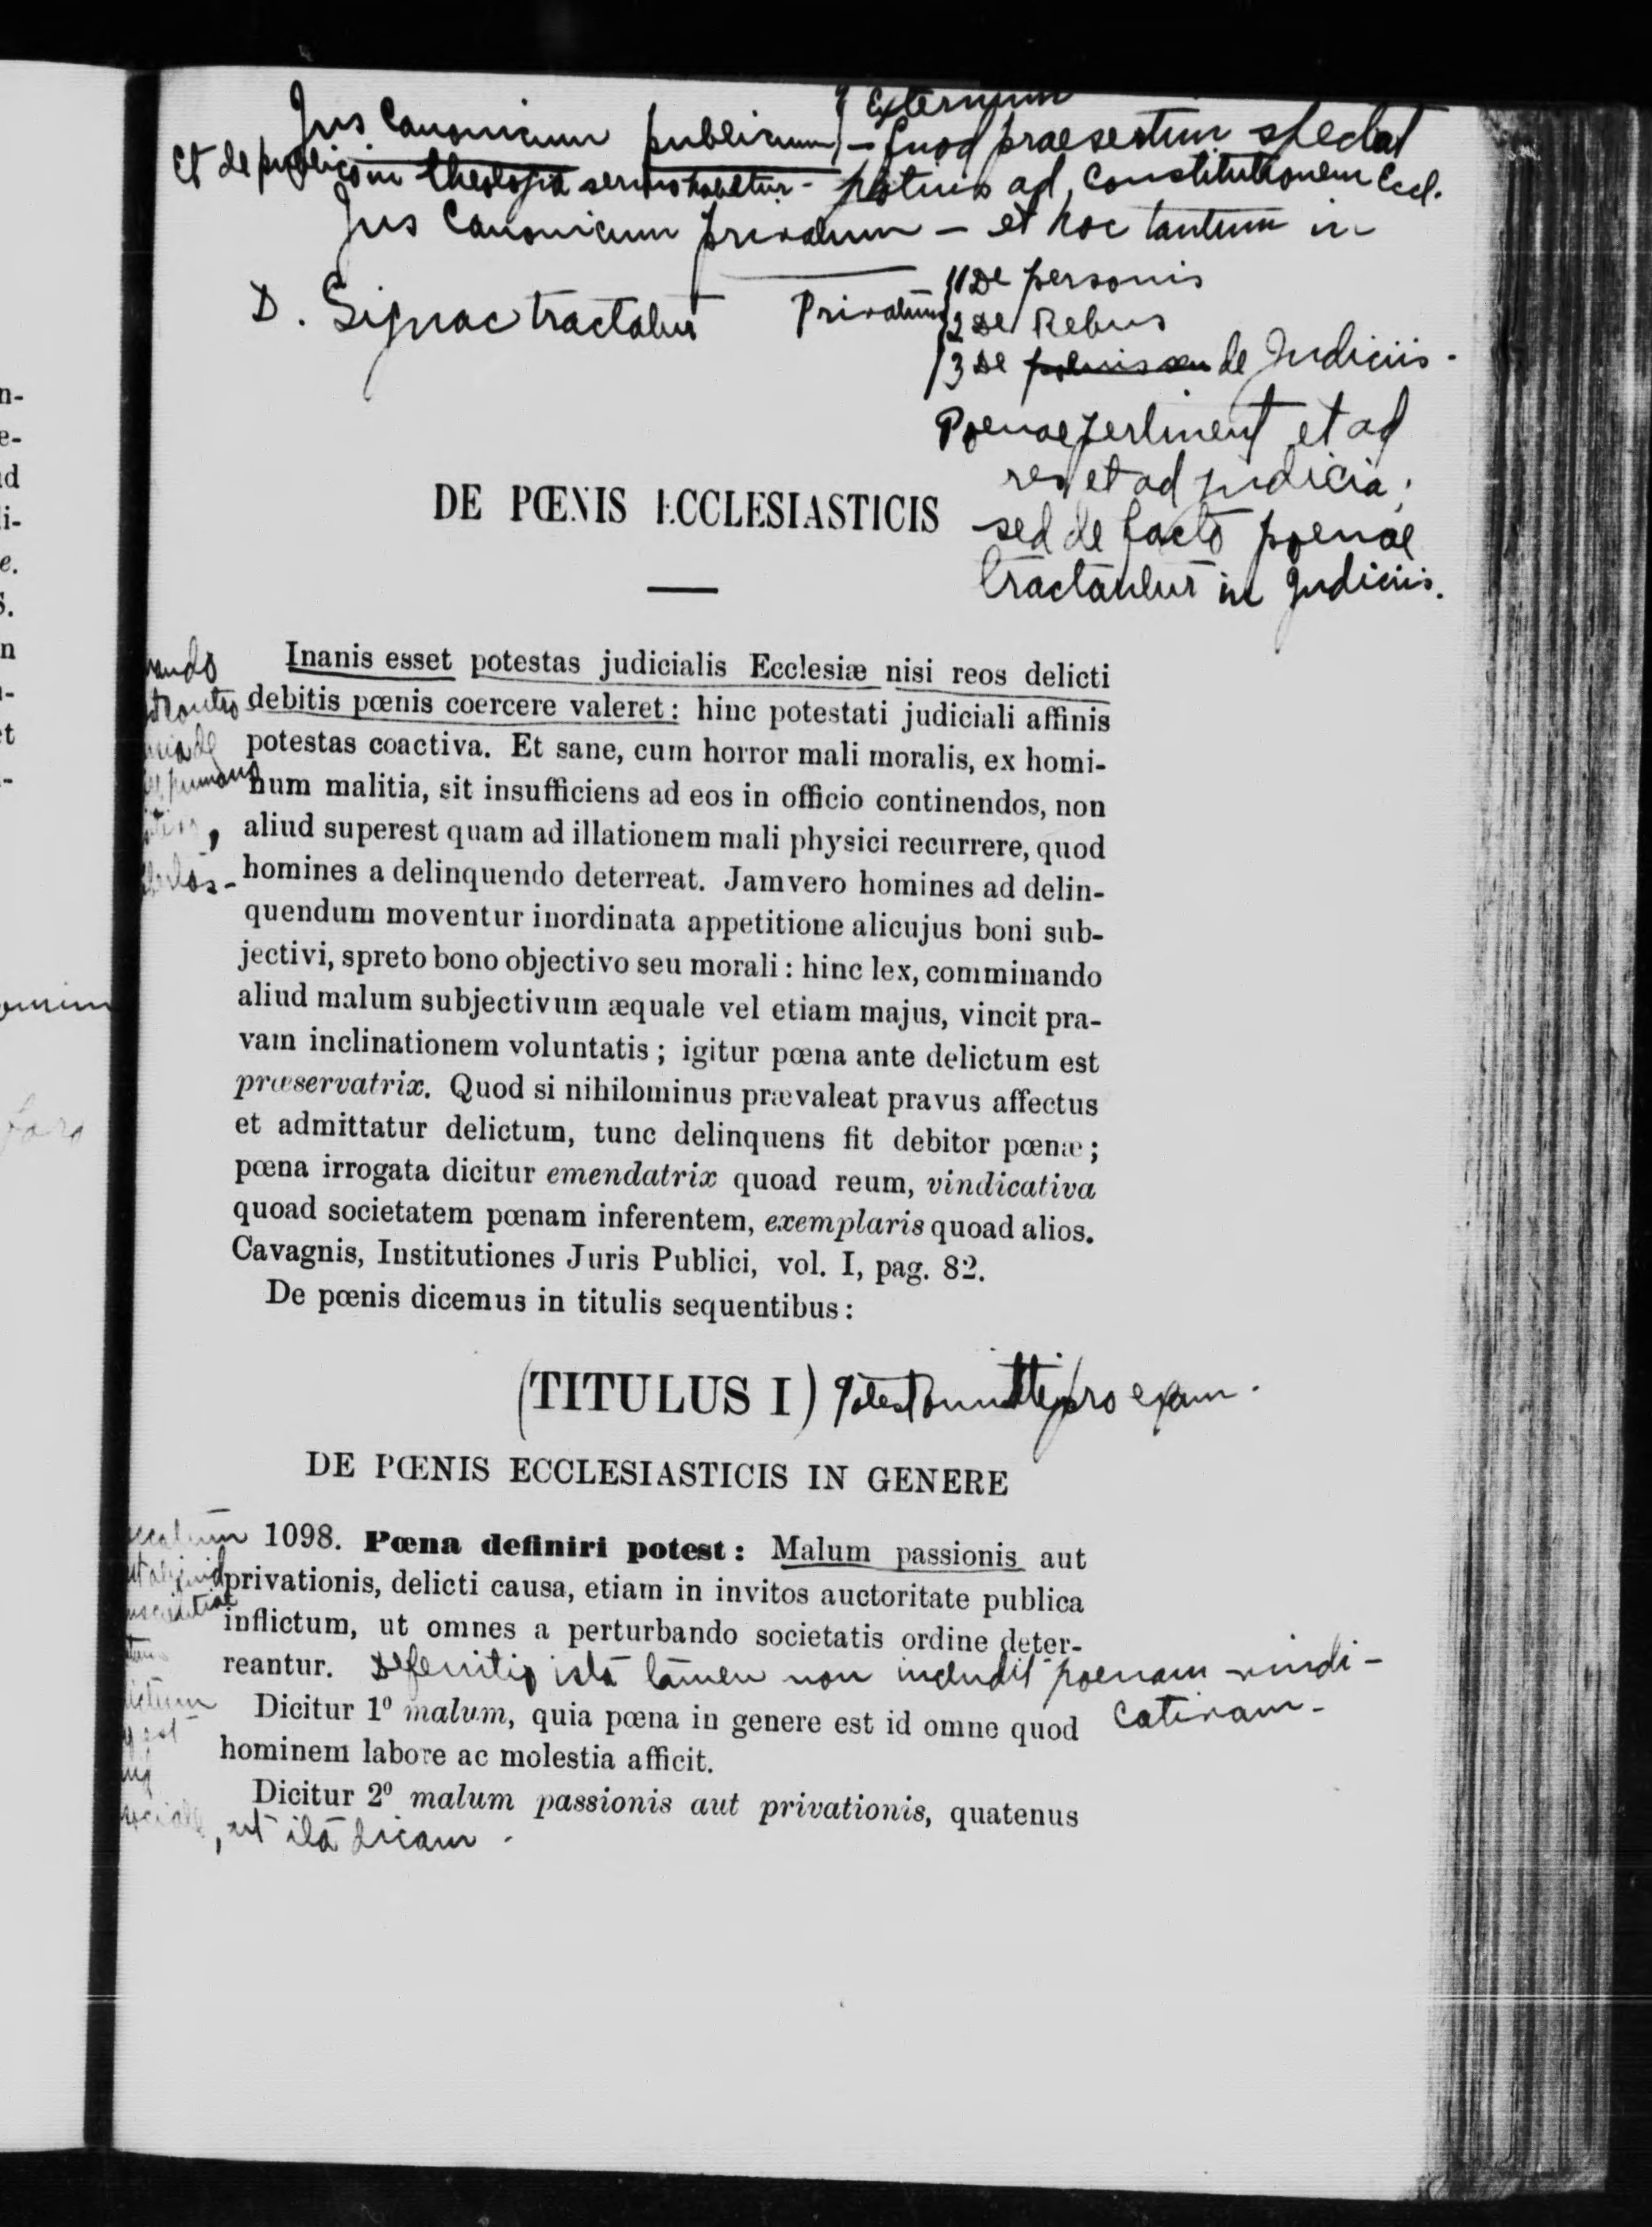 Externum
Jus Canonicum publicum - quod praesertim spectat
et de publico in theologia sermo habetur - potius ad constitutionem Eccl.
Jus Canonicum privatum - et hoc tantum in
D. Signac tractatur
Privatum
1 De personis
2 De Rebus
3 De poenis seu de Judiciis.
Poenae pertinent et ad
res et ad judicia;
sed de facto poenae
tractantur in Judiciis.
DE PŒNIS ECCLESIASTICIS
Inanis esset potestas judicialis Ecclesiæ nisi reos delicti
debitis pœnis coercere valeret : hinc potestati judiciali affinis
potestas coactiva. Et sane, cum horror mali moralis, ex homi-
num malitia, sit insufficiens ad eos in officio continendos, non
aliud superest quam ad illationem mali physici recurrere, quod
homines a delinquendo deterreat. Jamvero homines ad delin-
quendum moventur inordinata appetitione alicujus boni sub-
jectivi, spreto bono objectivo seu morali : hinc lex, comminando
aliud malum subjectivum æquale vel etiam majus, vincit pra-
vam inclinationem voluntatis ; igitur pœna ante delictum est
præservatrix. Quod si nihilominus prævaleat pravus affectus
et admittatur delictum, tunc delinquens fit debitor pœnæ ;
pœna irrogata dicitur emendatrix quoad reum, vindicativa
quoad societatem pœnam inferentem, exemplaris quoad alios.
Cavagnis, Institutiones Juris Publici, vol. I, pag. 82.
De pœnis dicemus in titulis sequentibus :
(TITULUS I) Potest omitti pro exam.
DE PŒNIS ECCLESIASTICIS IN GENERE
1098. Pœna definiri potest : Malum passionis aut
privationis, delicti causa, etiam in invitos auctoritate publica
inflictum, ut omnes a perturbando societatis ordine deter-
reantur. Definitio ista tamen non includit poenam vindi-
cativam-
Dicitur 1º malum, quia pœna in genere est id omne quod
hominem labore ac molestia afficit.
Dicitur 2º malum passionis aut privationis, quatenus
, ut ita dicam.